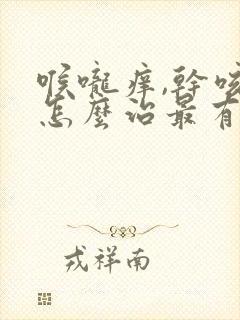 喉嚨痒,幹咳
怎麼治最有
戎祥南